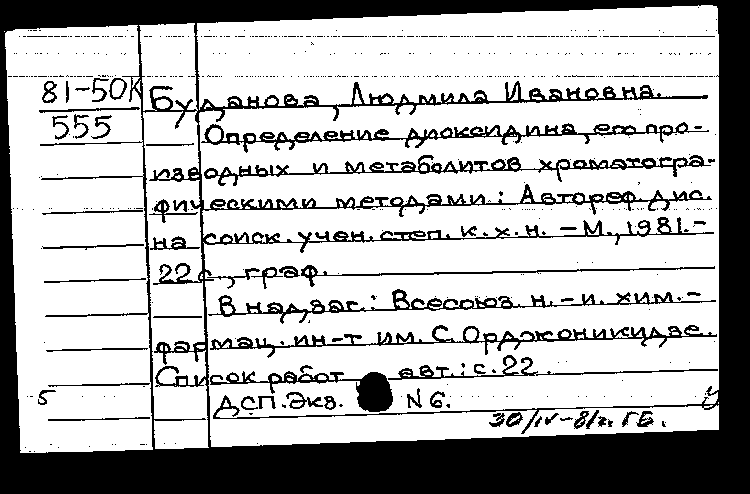 81-50К
555
Буданова, Людмила Ивановна.
Определение диоксидина, его про-
изводных и метаболитов хроматогра-
фическими методами.: Автореф. дис.
на соиск. учен. степ. к. х. н. - М., 1981. -
22 с., граф.
В надзаг.: Всесоюз. н.-и. хим.-
фармац. ин-т им. С. Орджоникидзе.
Список работ авт.: с. 22.
5
ДСП. Экз. N 6.
30/IV-81г. ГБ.